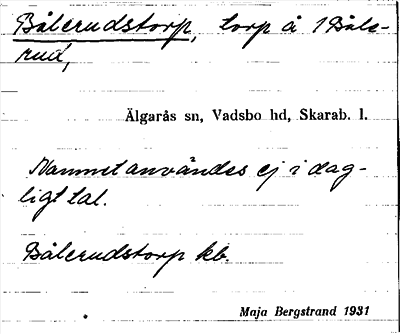 Bålerudstorp, torp å 1 Båle-
rud,
Älgarås sn, Vadsbo hd, Skarab. l.
Namnet användes ej i dag-
ligt tal.
Bålerudstorp kb.
Maja Bergstrand 1931